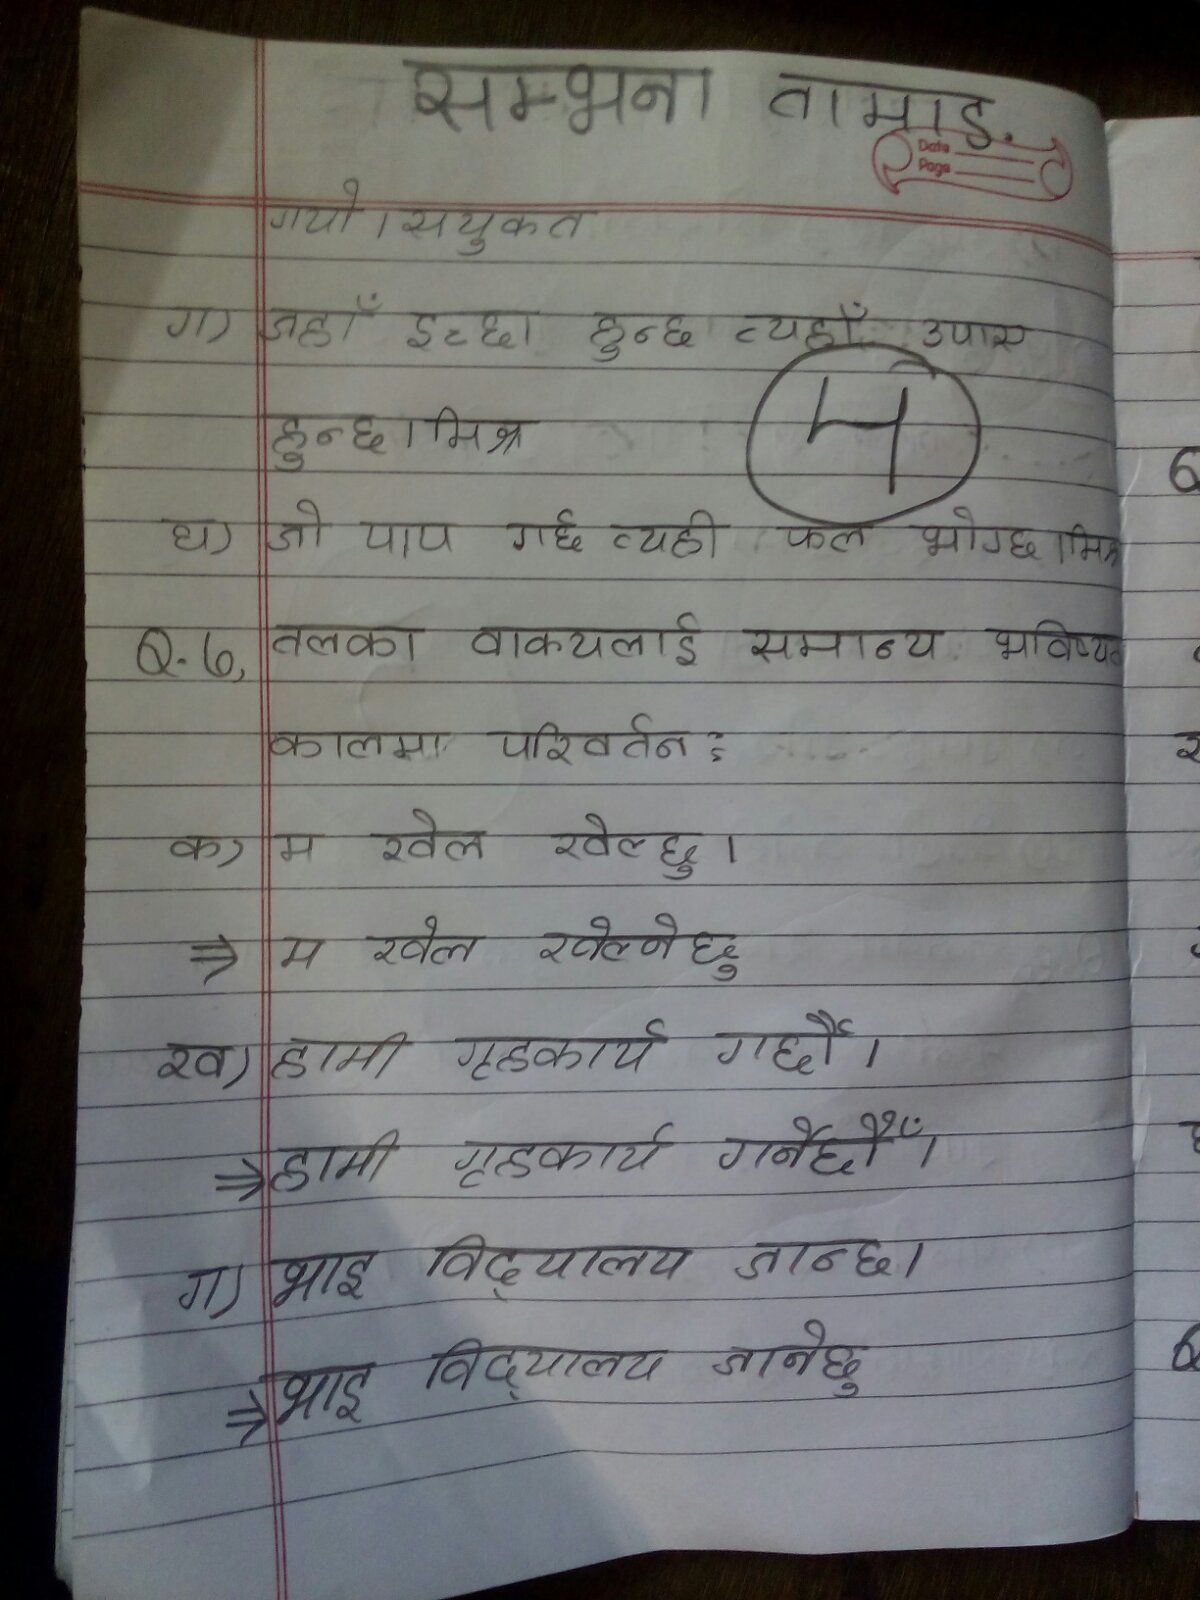 सम्भना तामाङ.
Date
Page
गयो । सयुकत
ग) जहाँ इच्छा हुन्छ त्यहाँ उपाय
हुन्छ । मिश्र
4
घ) जो पाप गर्छ त्यही फल भोग्छ । मिश्र
Q.6, तलका वाकयलाई समान्य भविष्यत
कालमा परिवर्तन :
क) म खेल खेल्छु ।
⇒ म खेल खेल्नेछु
ख) हामी गृहकार्य गर्छौँ ।
⇒ हामी गृहकार्य गर्नेछौँ ।
ग) भाइ विद्‌यालय जान्छ ।
⇒ भाइ विद्‌यालय जानेछु